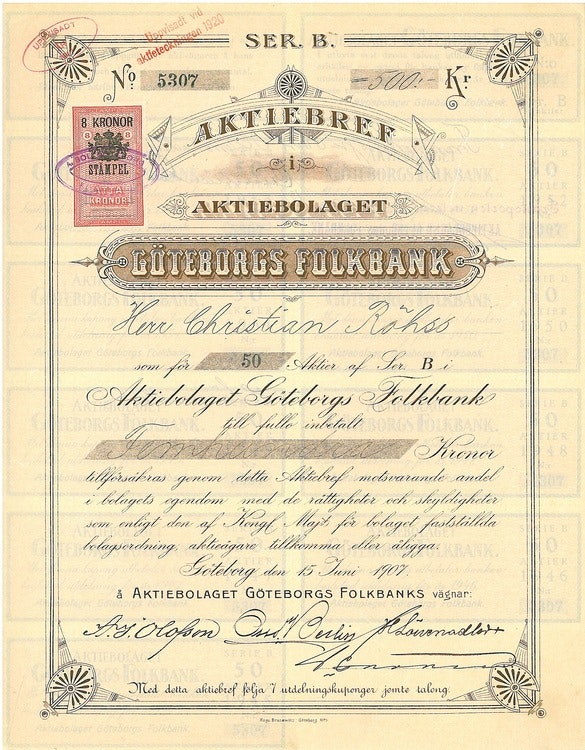 UPPVISADT
Uppvisadt vid
aktieteckningen 1920
SER. B.
No. 5307
=500:- Kr
8 KRONOR
STÄMPEL
ÅTTA
KRONOR
AKTIEBREF
i
AKTIEBOLAGET
GÖTEBORGS FOLKBANK
Herr Christian Röhss
som för 50 Aktier af Ser. B i
Aktiebolaget Göteborgs Folkbank
till fullo inbetalt
Femhundra Kronor
tillförsäkras genom detta Aktiebref motsvarande andel
i bolagets egendom med de rättigheter och skyldigheter
som enligt den af Kongl. Maj:t för bolaget fastställda
bolagsordning aktieägare tillkomma eller åligga.
Göteborg den 15 Juni 1907.
å AKTIEBOLAGET GÖTEBORGS FOLKBANKS vägnar:
Med detta aktiebref följa 7 utdelningskuponger jemte talong.